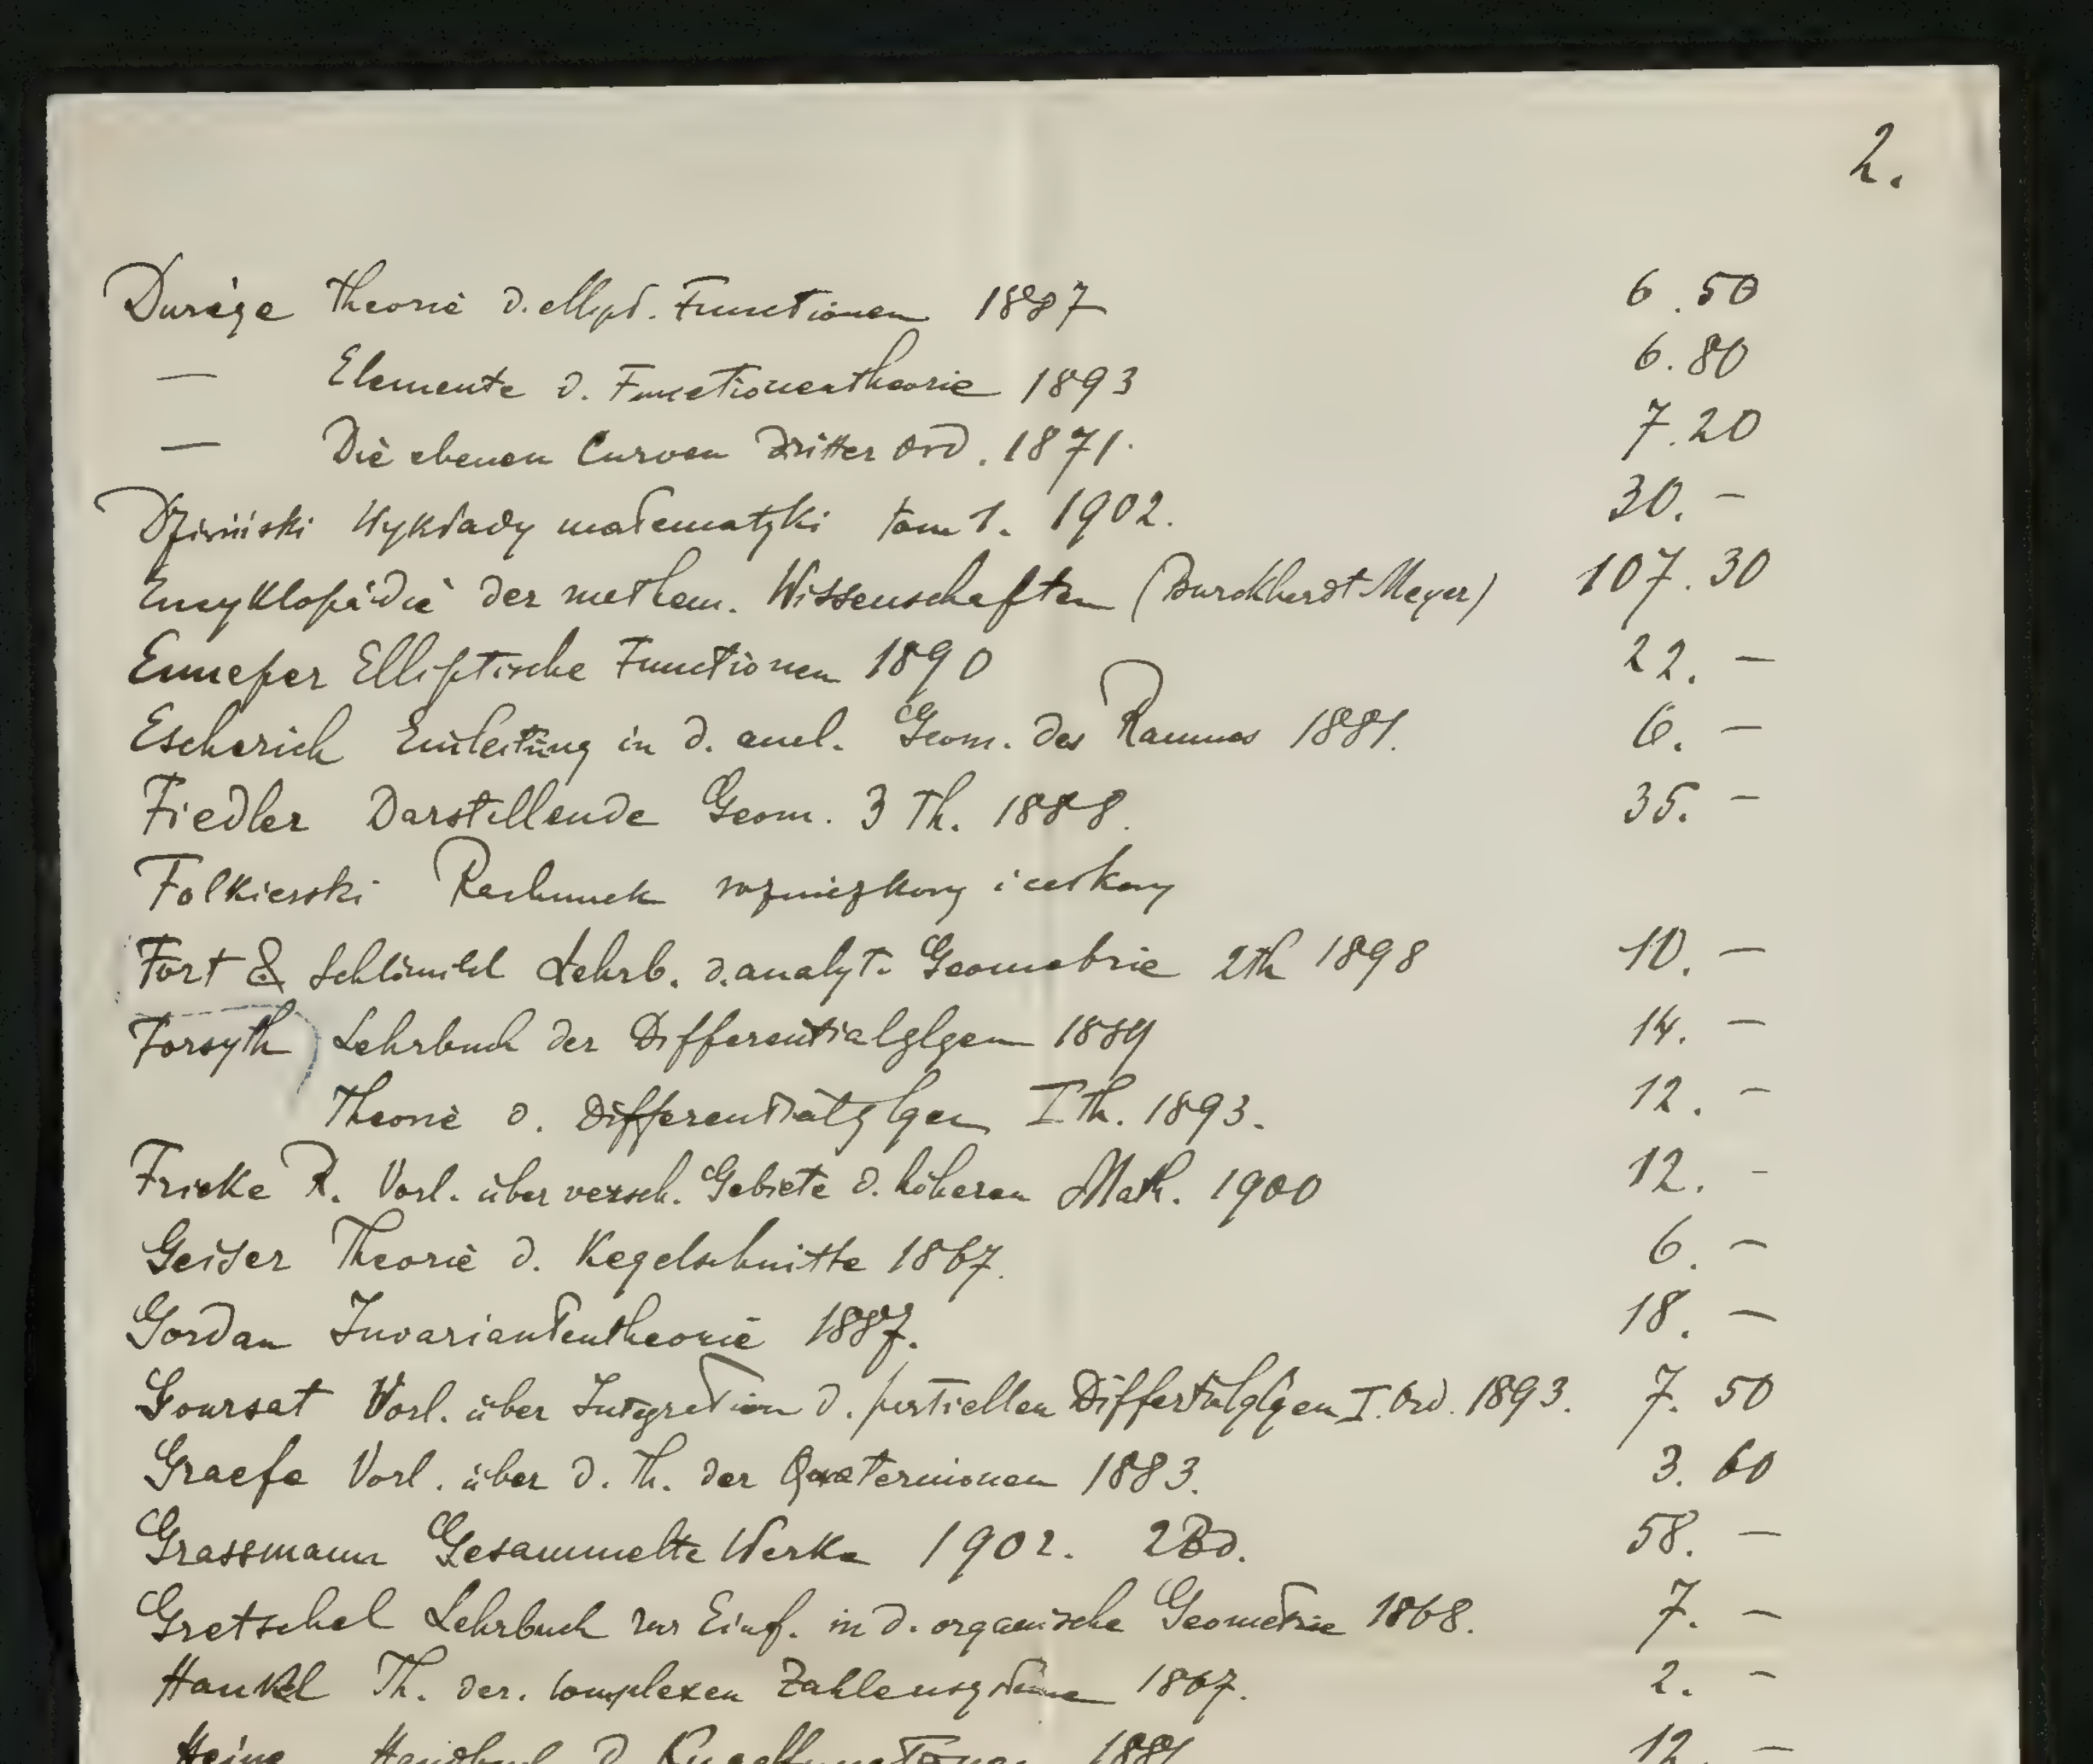 2.
Durège Theorie d. ellipt. Functionen 1887 6.50
— Elemente d. Functionentheorie 1893 6.80
— Die ebenen Curven dritter Ord. 1871. 7.20
Dziwiński Wykłady matematyki tom 1. 1902. 30.—
Encyklopädie der mathem. Wissenschaften (Burckhardt Meyer) 107.30
Enneper Elliptische Functionen 1890 22.—
Escherich Einleitung in d. anal. Geom. des Raumes 1881. 6.—
Fiedler Darstellende Geom. 3 Th. 1888. 35.—
Folkierski Rachunek różniczkowy i całkowy
Fort & Schlömilch Lehrb. d. analyt. Geometrie 2 Th 1898 10.—
Forsyth Lehrbuch der Differentialglgen 1889 14.—
Theorie d. Differentialglgen I Th. 1893. 12.—
Fricke R. Vorl. über versch. Gebiete d. höheren Math. 1900 12.-
Geiser Theorie d. Kegelschnitte 1867. 6.—
Gordan Invariantentheorie 1887. 18.—
Goursat Vorl. über Integration d. partiellen Differtialglgen I. Ord. 1893. 7.50
Graefe Vorl. über d. Th. der Quaternionen 1883. 3.60
Grassmann Gesammelte Werke 1902. 2 Bd. 58.—
Gretschel Lehrbuch zur Einf. in d. organische Geometrie 1868. 7.—
Hankel Th. der. complexen Zahlensysteme 1867. 2.-
Heine Handbuch d. Kugelfunctionen 1881 12.—